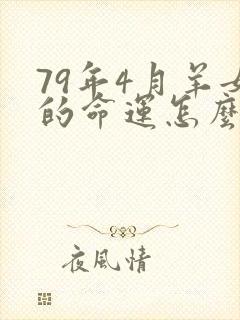 79年4月羊女
的命運怎麼
夜風情